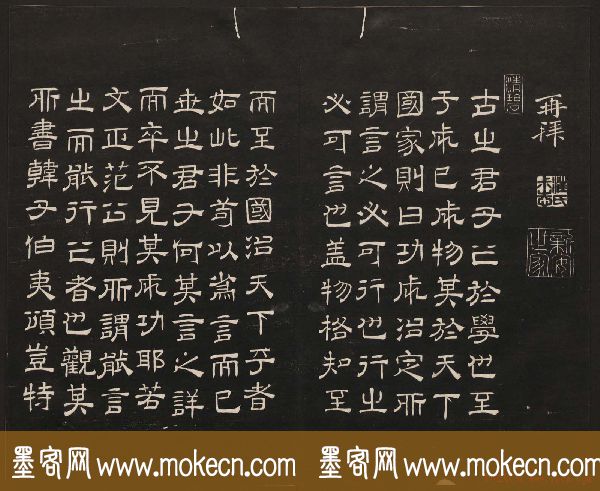 再拜
古之君子之於學也至
于成己成物其於天下
國家則曰功成治定所
謂言之必可行也行之
必可言也盖物格知至
而至於國治天下平者
如此非苟以爲言而已
世之君子何其言之詳
而卒不見其成功耶若
文正范公則所謂能言
之而能行之者也觀其
所書韓子伯夷頌豈特
墨客网 www.mokecn.com 墨客网 www.mokecn.com